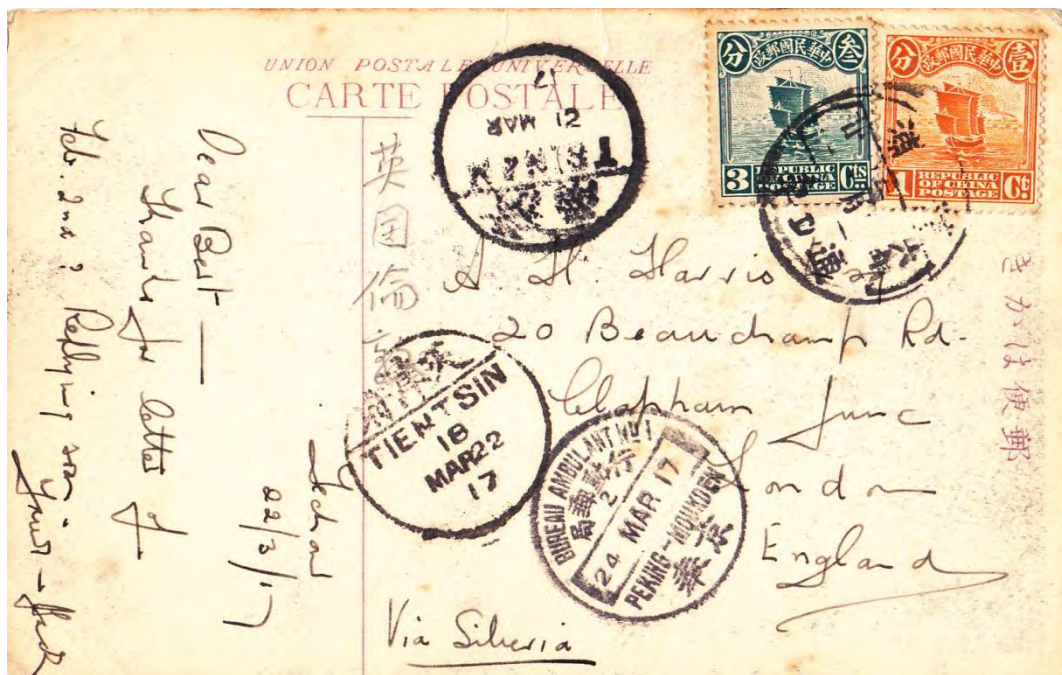 UNION POSTALE UNIVERSELLE
CARTE POSTALE
中華民國郵政
叁
分
REPUBLIC
OF CHINA
POSTAGE
3 Cts
中華民國郵政
壹
分
REPUBLIC
OF CHINA
POSTAGE
1 Ct
TSINAN
21 MAR
17
英国倫
A. H. Harris
20 Beauchamp Rd.
Clapham Junc
London
England
Via Siberia
きかは便郵
TIENTSIN
18
MAR 22
17
BUREAU AMBULANT No 1
局郵動行
2
24 MAR 17
PEKING-MOUKDEN
京奉
22/3/17
Dear Bert —
Thanks for letter of
Feb. 2nd? Replying soon
Yours